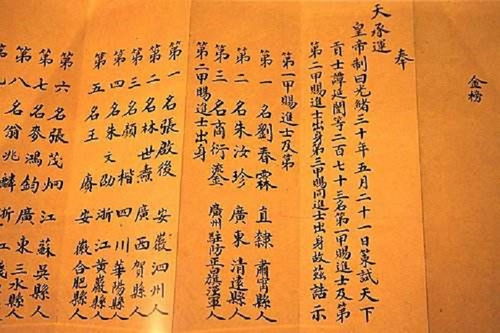 金榜
奉
天承運
皇帝制曰光緒三十年五月二十一日策試天下
貢士譚延闓等二百七十三名第一甲賜進士及第
第二甲賜進士出身第三甲賜同進士出身故茲誥示
第一甲賜進士及第
第一名劉春霖 直隸肅甯縣人
第二名朱汝珍 廣東清遠縣人
第三名商衍鎏 廣州駐防正白旗漢軍人
第二甲賜進士出身
第一名張啟後 安徽泗州人
第二名林世燾 廣西賀縣人
第三名顏楷 四川華陽縣人
第四名朱文劭 浙江黃巖縣人
第五名王賡 安徽合肥縣人
第六名張茂炯 江蘇吳縣人
第七名麥鴻鈞 廣東三水縣人
第八名翁兆麟 浙江
第九